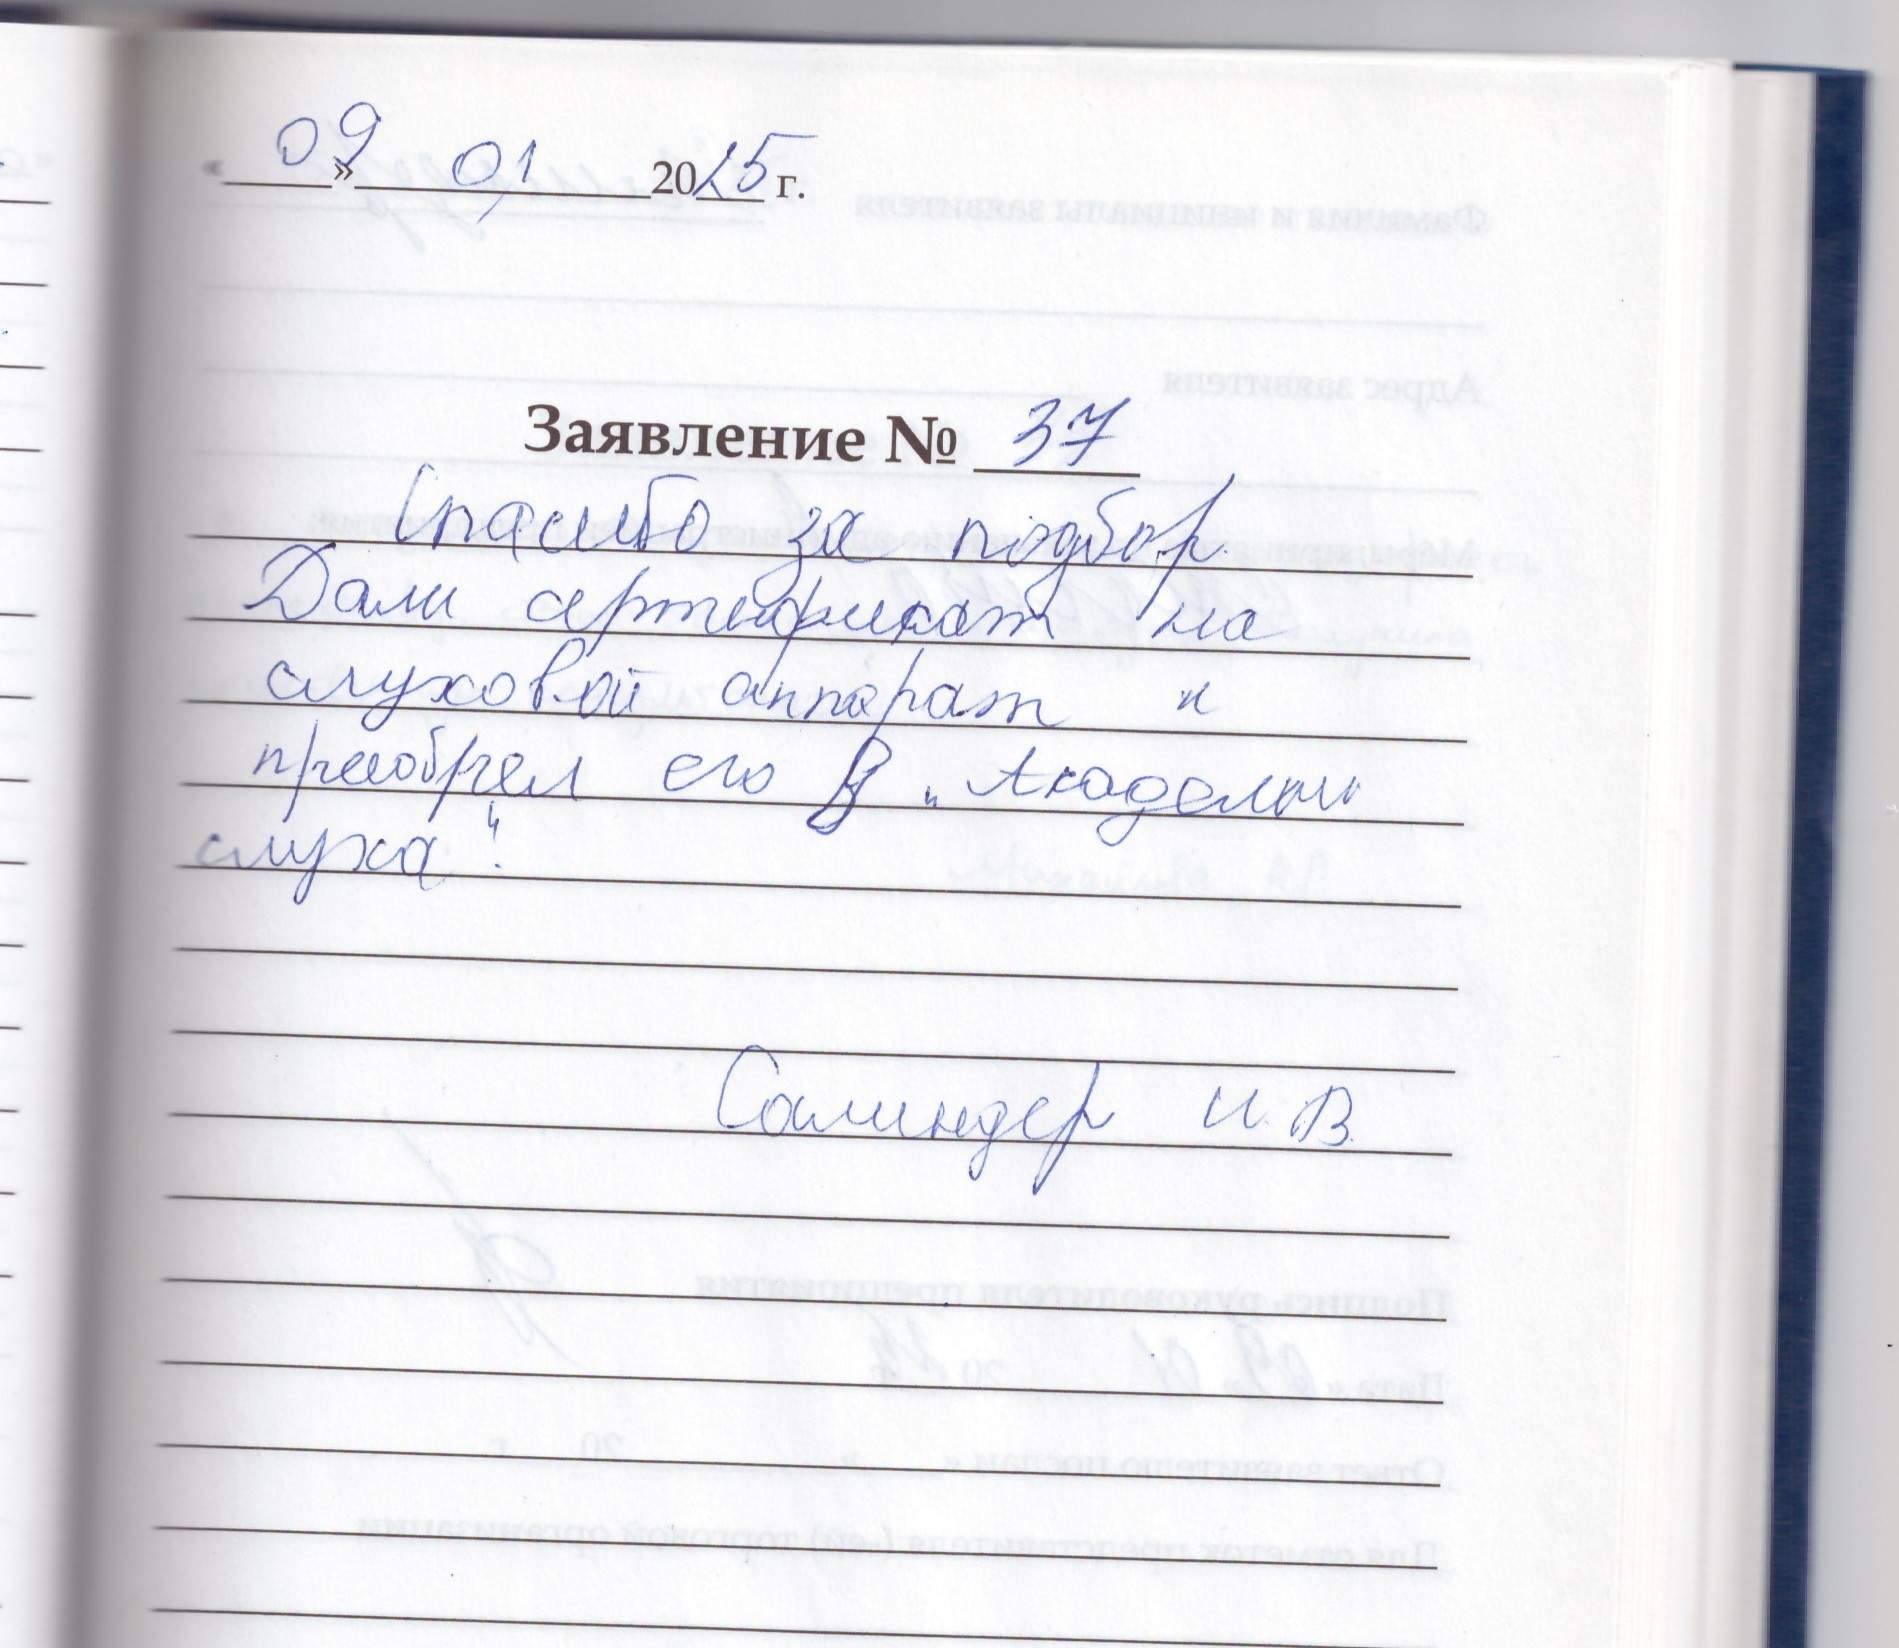 « 09 » 01 2025 г.
Заявление № 37
Спасибо за подбор.
Дали сертификат на
слуховой аппарат и
преобрел его в "Академии
слуха".
Салиндер И.В.